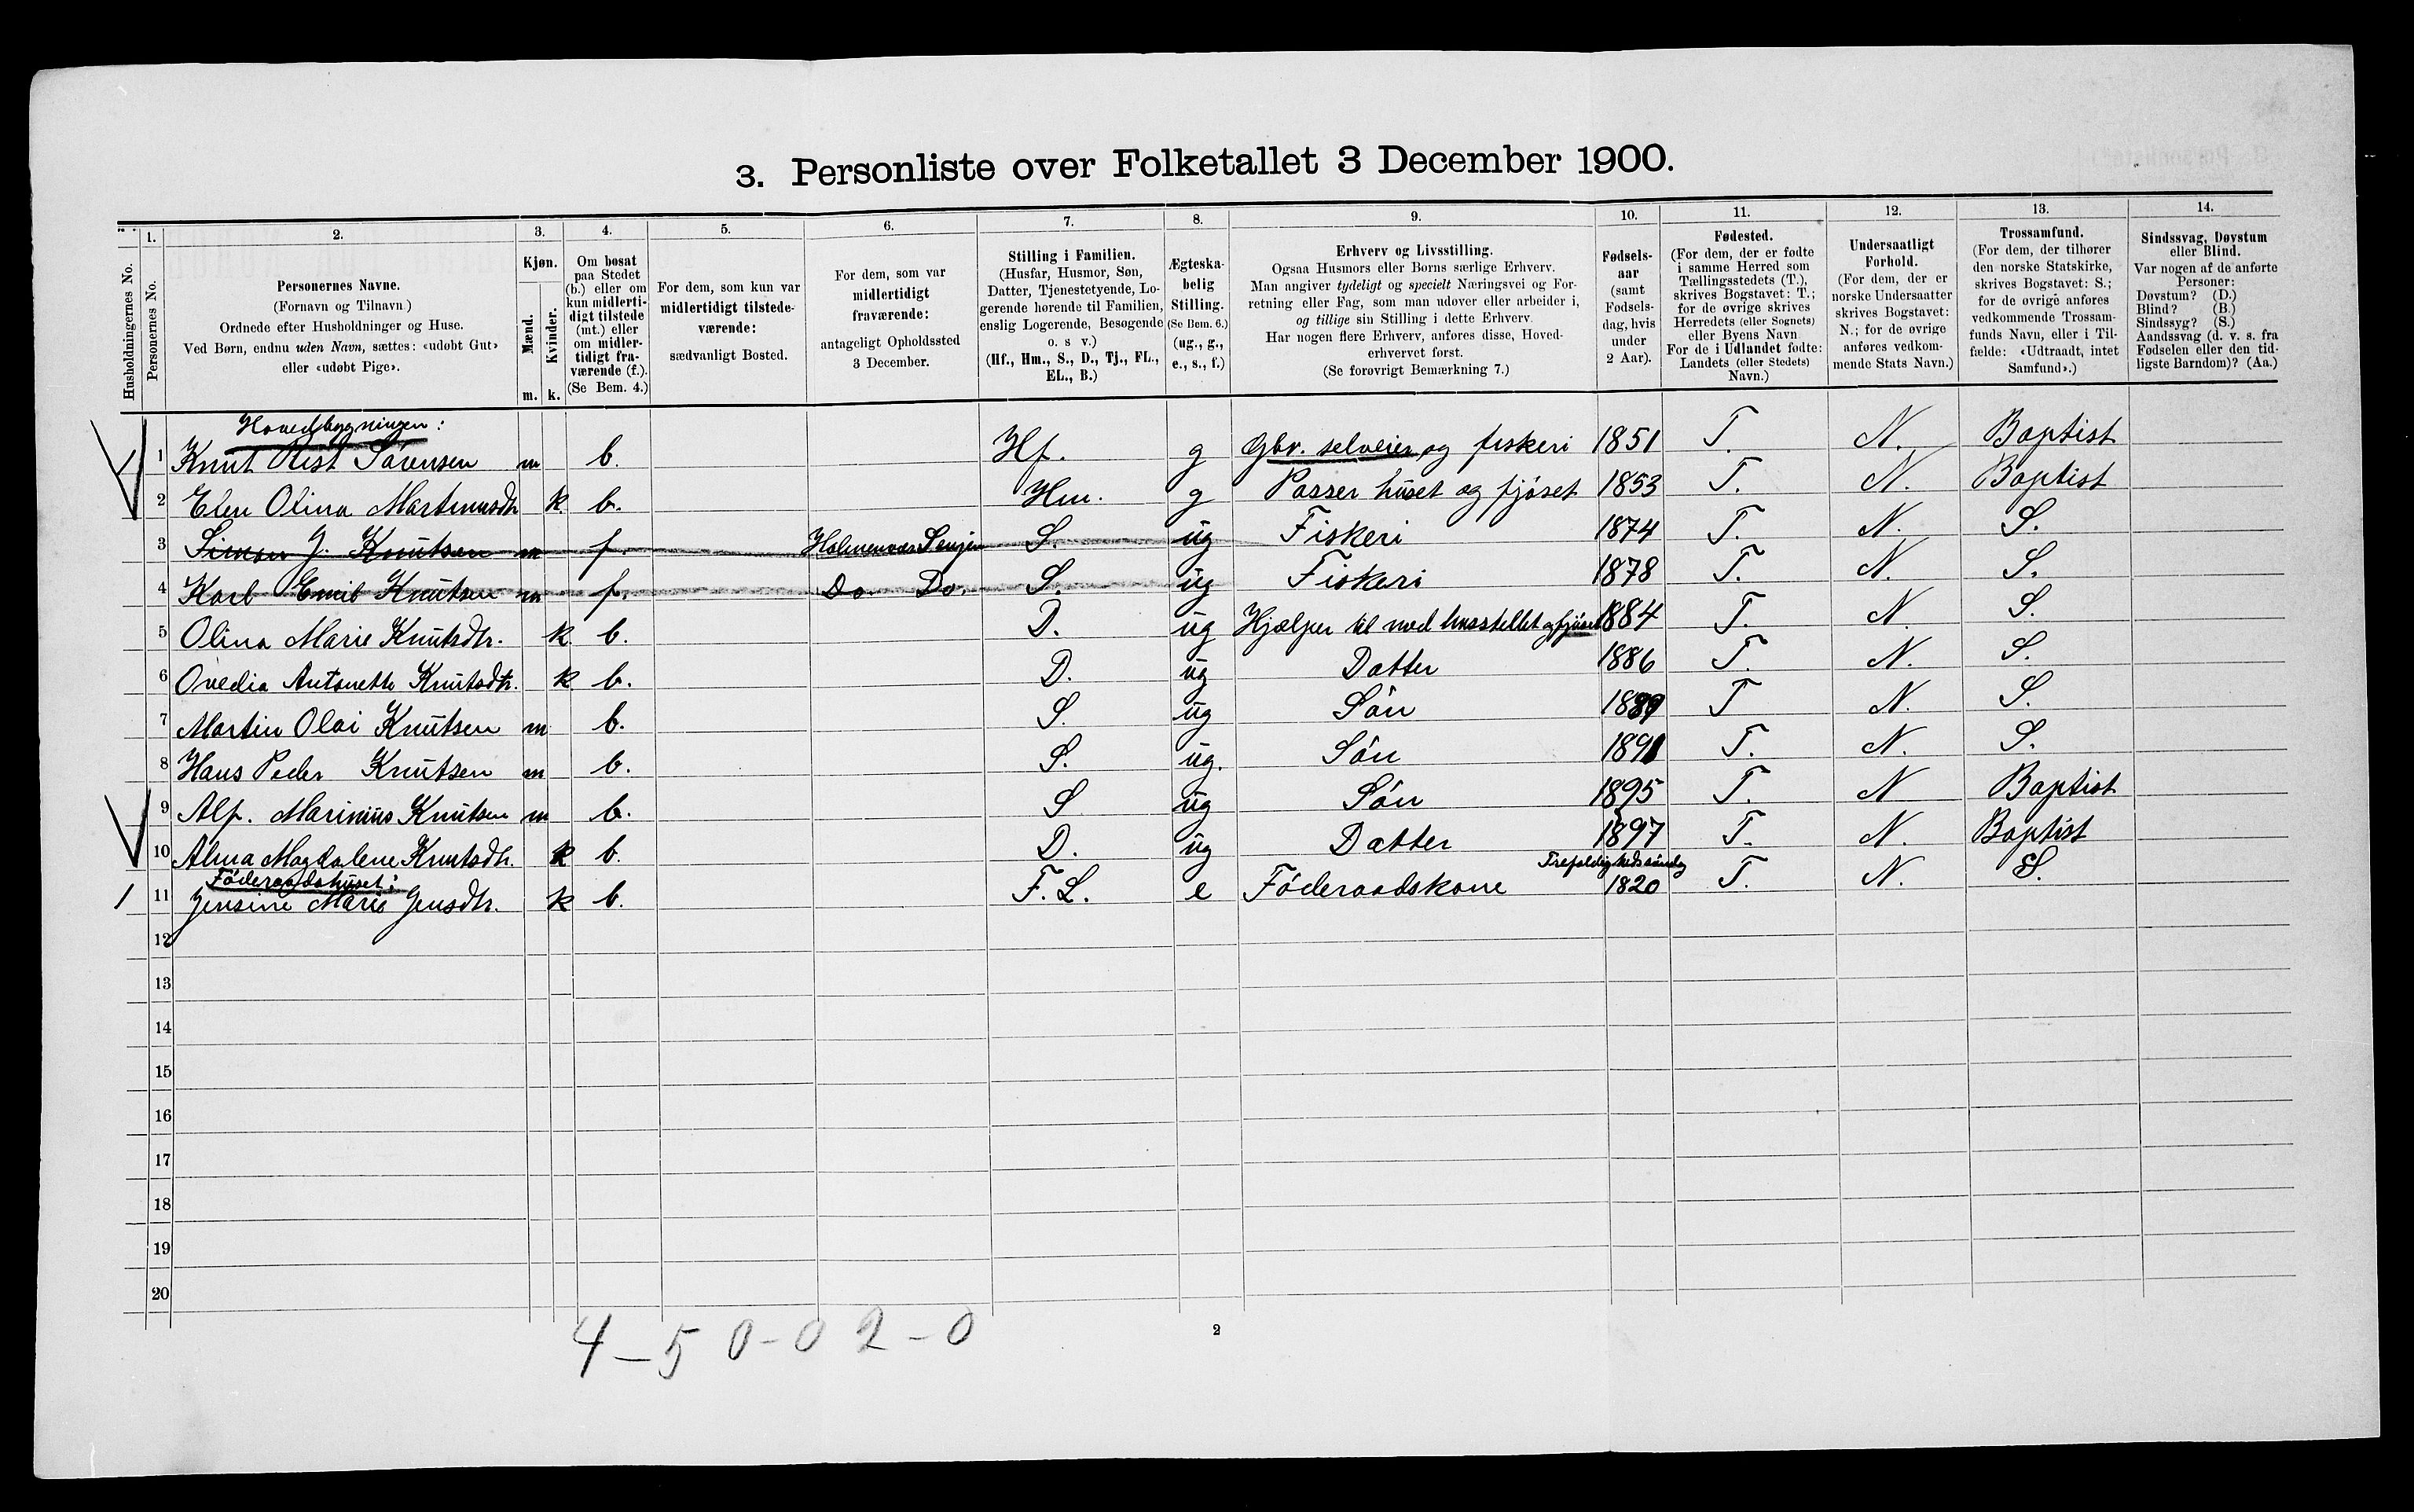 3. Personliste over Folketallet 3 December 1900.
1. 2. 3. 4. 5. 6. 7. 8. 9. 10. 11. 12. 13. 14.
Husholdningernes No.
Personernes No.
Personernes Navne.
(Fornavn og Tilnavn.)
Ordnede efter Husholdninger og Huse.
Ved Børn, endnu uden Navn, sættes: «udøbt Gut»
eller «udøbt Pige».
Kjøn.
Mænd.
Kvinder.
m. k.
Om bosat
paa Stedet
(b.) eller om
kun midlerti-
digt tilstede
(mt.) eller
om midler-
tidigt fra-
værende (f.).
(Se Bem. 4.)
For dem, som kun var
midlertidigt tilstede-
værende:
sædvanligt Bosted.
For dem, som var
midlertidigt
fraværende:
antageligt Opholdssted
3 December.
Stilling i Familien.
(Husfar, Husmor, Søn,
Datter, Tjenestetyende, Lo-
gerende hørende til Familien,
enslig Logerende, Besøgende
o. s v.)
(Hf., Hm., S., D., Tj., FL.,
EL., B.)
Ægteska-
belig
Stilling.
(Se Bem. 6.)
(ug., g.,
e., s., f.)
Erhverv og Livsstilling.
Ogsaa Husmors eller Børns særlige Erhverv.
Man angiver tydeligt og specielt Næringsvei og For-
retning eller Fag, som man udøver eller arbeider i,
og tillige sin Stilling i dette Erhverv.
Har nogen flere Erhverv, anføres disse, Hoved-
erhvervet først.
(Se forøvrigt Bemærkning 7.)
Fødsels-
aar
(samt
Fødsels-
dag, hvis
under
2 Aar).
Fødested.
(For dem, der er fødte
i samme Herred som
Tællingsstedets (T.),
skrives Bogstavet: T.;
for de øvrige skrives
Herredets (eller Sognets)
eller Byens Navn
For de i Udlandet fødte:
Landets (eller Stedets)
Navn.)
Undersaatligt
Forhold.
(For dem, der er
norske Undersaatter
skrives Bogstavet:
N.; for de øvrige
anføres vedkom-
mende Stats Navn.)
Trossamfund.
(For dem, der tilhører
den norske Statskirke,
skrives Bogstavet: S.;
for de øvrige anføres
vedkommende Trossam-
funds Navn, eller i Til-
fælde: «Udtraadt, intet
Samfund».)
Sindssvag, Døvstum
eller Blind.
Var nogen af de anførte
Personer:
Døvstum? (D.)
Blind? (B.)
Sindssyg? (S.)
Aandssvag (d. v. s. fra
Fødselen eller den tid-
ligste Barndom)? (Aa.)
Hovedbygningen:
1 Knut Sørensen m b. Hf. g Gbr. selveier og fiskeri 1851 T. N. Baptist
2 Elen Olina Martinusdtr k b. Hm. g Passer huset og fjöset 1853 T. N. Baptist
3 Simon J. Knutsen m f. Senjen S. ug Fiskeri 1874 T. N. S.
4 Karl Emil Knutsen m f. Do Do. S. ug Fiskeri 1878 T. N. S.
5 Olina Marie Knutsdtr. k b. D. ug Hjælper til med husstellet og fjöset 1884 T. N. S.
6 Ovedia Antonette Knutsdtr. k b. D. ug Datter 1886 T. N. S.
7 Martin Olai Knutsen m b. S. ug Sön 1889 T N. S.
8 Hans Peder Knutsen m b. S. ug. Sön 1891 T. N. S.
9 Alf. Marinius Knutsen m b. S ug Sön 1895 T. N Baptist
10 Alma Magdalene Knutsdtr. k b. D. ug Datter 1897 T. N. Baptist
Föderaadshuset: Trefoldighedssöndag
1 11 Jensine Marie Jensdtr. k b. F. L. e Föderaadskone 1820 T. N. S.
12
13
14
15
16
17
18
19
20
4 – 5 0 – 0 2 – 0
2